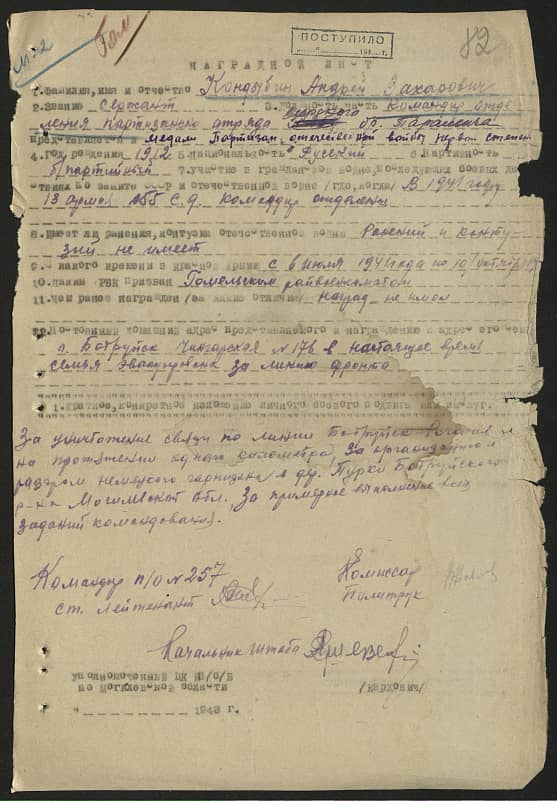 ПОСТУПИЛО
82
НАГРАДНОЙ ЛИСТ
1. Фамилия, имя и отчество Кондыбин Андрей Захарович
2. Звание сержант 3. должность, часть Командир отде
ления партизанского отряда
представляется к медали Партизан отечественной войны первой степени
4. год рождения 1912 5. Национальность Русский 6. Партийность
б/партийный 7. участие в гражданской войне, последующих боевых дей
ствиях по защите СССР и отечественной войне /где, когда/ В 1941 году
13 армия 155 С.Д. командир отделения
8. Имеет ли ранения, контузии в отечественной войне Ранений и конту
зий не имеет
9. С какого времени в красной армии с 6 июля 1941 года по 10 октября
10. каким РВК призван Гомельским райвоенкоматом
11. чем ранее награжден /за какие отличия/ наград не имел
12. Постоянный домашний адрес представляемого к награждению и адрес его семьи
г. Бобруйск Чангарская № 176 в настоящее время
семья эвакуирована за линию фронта
1. Краткое, конкретное изложение личного боевого подвига или заслуг.
За уничтожение связи по линии Бобруйск Рогачев
на протяжении одного километра, За организацию и
разгром немецкого гарнизона в дер. Пурки Бобруйского
р-на Могилевской обл. За примерное выполнение всех
заданий командования.
Командир п/о № 257
ст. лейтенант
Комиссар
Политрук
Начальник штаба
уполномоченный ЦК КП/б/Б
по Могилевской области
/кардович/
" " 1943 г.